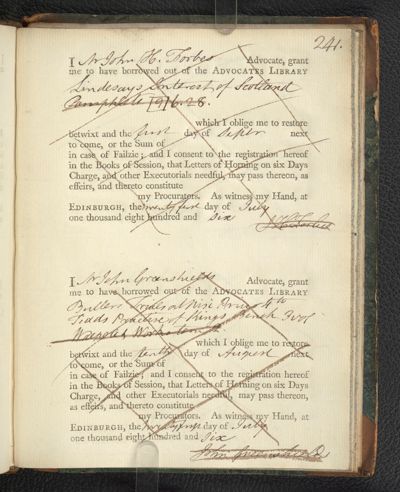 241.
I Mr John H. Forbes Advocate, grant
me to have borrowed out of the ADVOCATES LIBRARY
Lindesays Interest of Scotland
Pamphlets
which I oblige me to restore
betwixt and the first day of next
to come, or the Sum of
in case of Failzie; and I consent to the registration hereof
in the Books of Session, that Letters of Horning on six Days
Charge, and other Executorials needful, may pass thereon, as
effeirs, and thereto constitute
my Procurators. As witness my Hand, at
EDINBURGH, the twenty first day of July
one thousand eight hundred and six
I Mr John Greenshields Advocate, grant
me to have borrowed out of the ADVOCATES LIBRARY
Bullers Trials at Nisi Prius 4to
Tidds Practice of Kings Bench
which I oblige me to restore
betwixt and the tenth day of August next
to come, or the Sum of
in case of Failzie; and I consent to the registration hereof
in the Books of Session, that Letters of Horning on six Days
Charge, and other Executorials needful, may pass thereon,
as effeirs, and thereto constitute
my Procurators. As witness my Hand, at
EDINBURGH, the twenty first day of July
one thousand eight hundred and six
John Greenshields